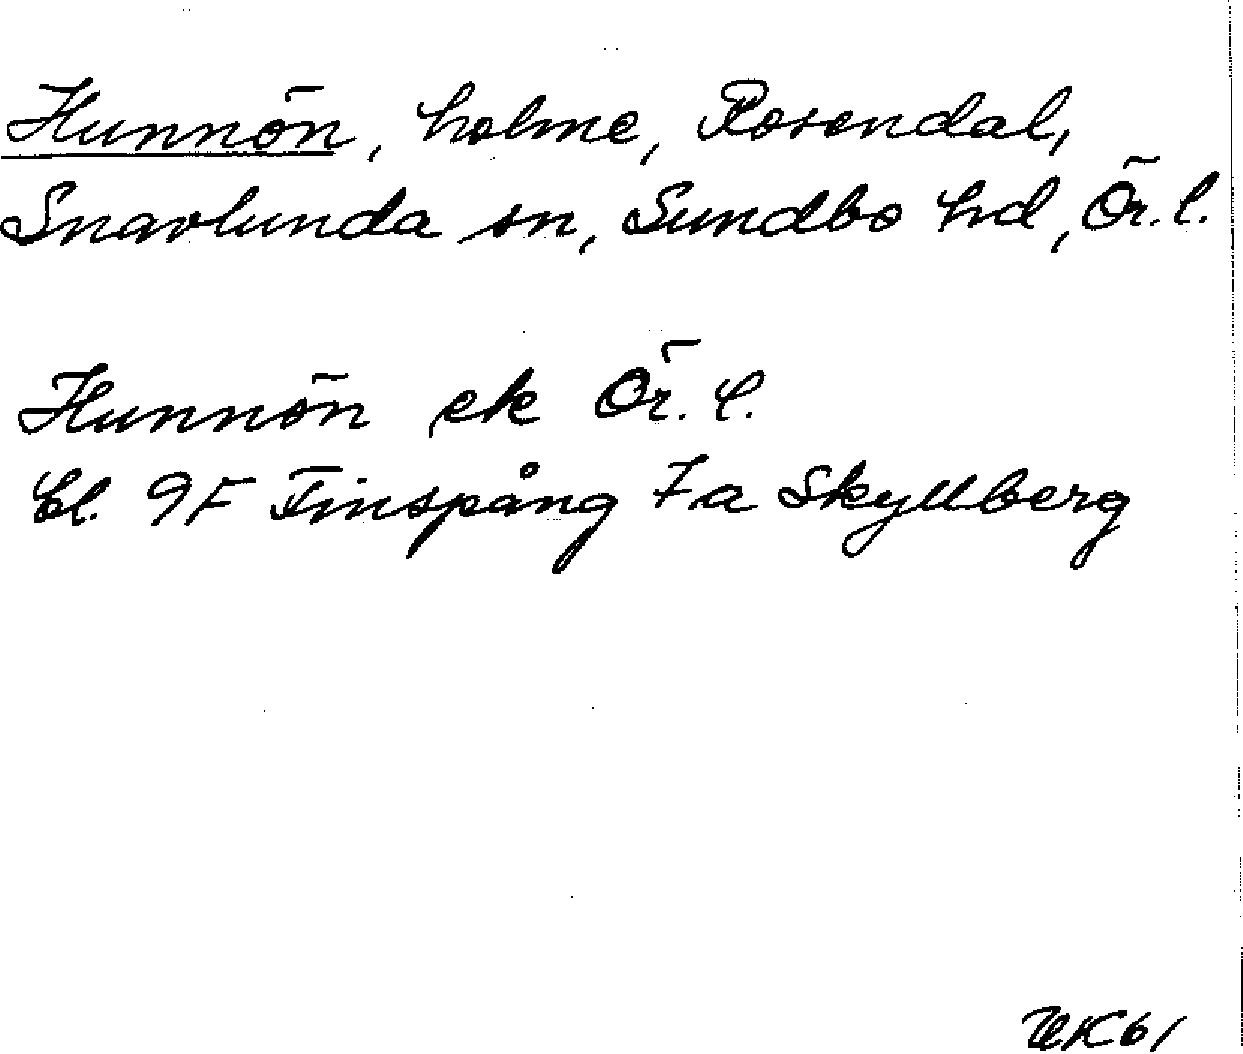 Hunnön, holme, Rosendal,
Snavlunda sn, Sundbo hd, Ör. l.
Hunnön ek Ör. l.
bl. 9F Finspång 7a Skyllberg
UK61